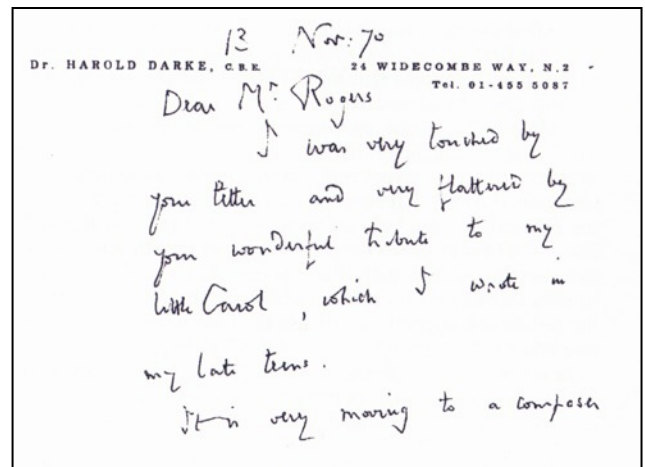 13 Nov: 70
Dr. HAROLD DARKE, C.B.E. 24 WIDECOMBE WAY, N.2
Tel. 01-455 5087
Dear Mr. Rogers
I was very touched by
your letter and very flattered by
your wonderful tribute to my
little Carol, which I wrote in
my late teens.
It is very moving to a composer